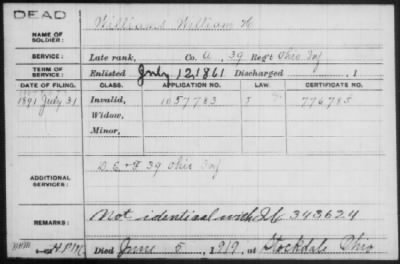 DEAD
NAME OF SOLDIER: Williams William H
SERVICE: Late rank, Co. A, 39 Reg't Ohio Inf
TERM OF SERVICE: Enlisted July 12 1861 Discharged , 1
DATE OF FILING. CLASS. APPLICATION NO. LAW. CERTIFICATE NO.
1891 July 31 Invalid, 1057783 J 776785
Widow,
Minor,
ADDITIONAL SERVICES: 39 Ohio Inf
REMARKS: Not identical with 343624
Died June 5, 1919, at Stockdale Ohio